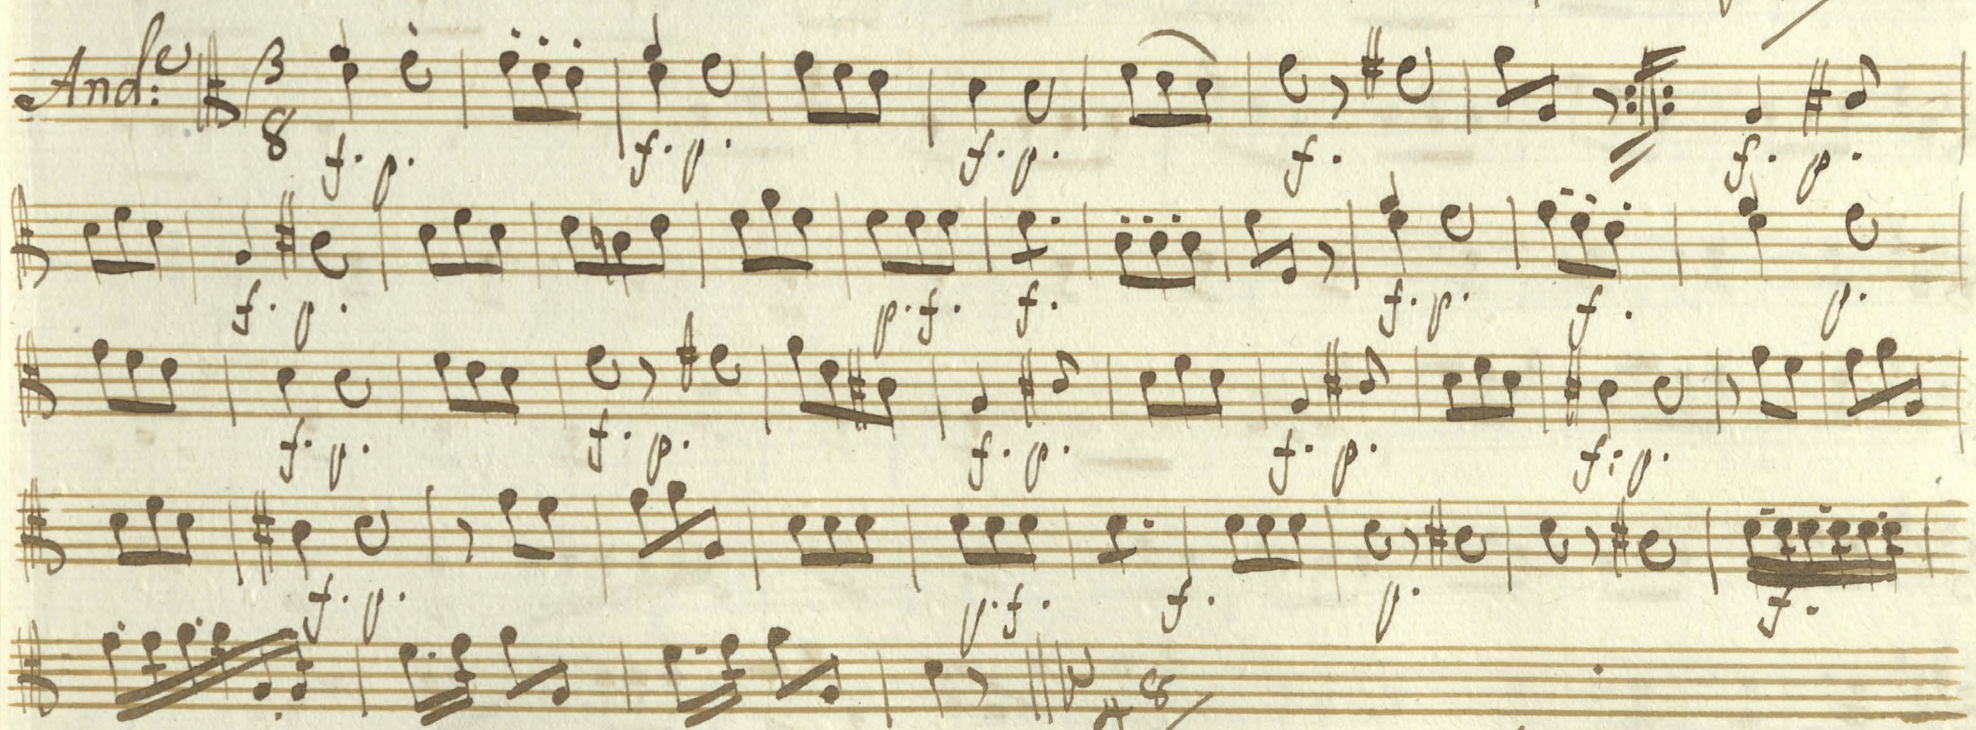 And:te 3 8
f. p. f. p. f. p. f. f. p.
f. p. p. f. f. f. p. f. p.
f. p. f. p. f. p. f. p. f: p.
f. p. p. f. f. p. f.